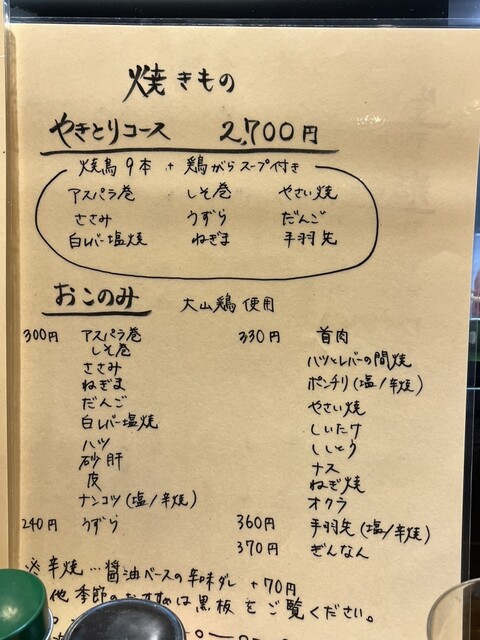 焼きもの
やきとりコース 2,700円
焼鳥9本 + 鶏がらスープ付き
アスパラ巻 しそ巻 やさい焼
ささみ うずら だんご
白レバー塩焼 ねぎま 手羽先
おこのみ 大山鶏使用
300円 アスパラ巻 330円 首肉
しそ巻 ハツとレバーの間焼
ささみ ポンチリ(塩/辛焼)
ねぎま やさい焼
だんご しいたけ
白レバー塩焼 ししとう
ハツ ナス
砂肝 ねぎ焼
皮 オクラ
ナンコツ(塩/辛焼)
240円 うずら 360円 手羽先(塩/辛焼)
370円 ぎんなん
※辛焼…醤油ベースの辛味ダレ +70円
他季節のおすすめは黒板をご覧ください。